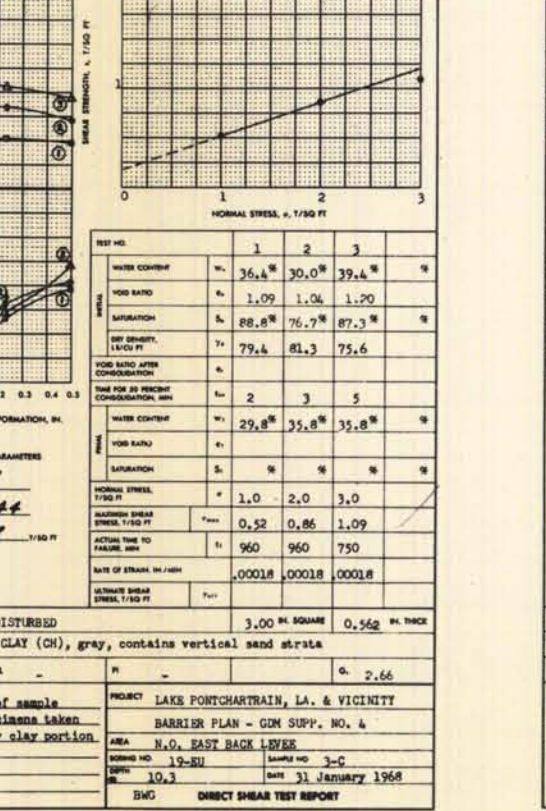 SHEAR STRENGTH, s, T/SQ FT
1
0 1 2 3
NORMAL STRESS, σ, T/SQ FT
0.3 0.4 0.5
FORMATION, IN.
PARAMETERS
44
T/SQ FT
TEST NO. 1 2 3
INITIAL
WATER CONTENT w₀ 36.4% 30.0% 39.4% %
VOID RATIO e₀ 1.09 1.04 1.20
SATURATION S₀ 88.8% 76.7% 87.3% %
DRY DENSITY, LB/CU FT γd 79.4 81.3 75.6
VOID RATIO AFTER CONSOLIDATION
TIME FOR 50 PERCENT CONSOLIDATION, MIN t₅₀ 2 3 5
FINAL
WATER CONTENT 29.8% 35.8% 35.8% %
VOID RATIO
SATURATION % % % %
NORMAL STRESS, T/SQ FT σ 1.0 2.0 3.0
MAXIMUM SHEAR STRESS, T/SQ FT τmax 0.52 0.86 1.09
ACTUAL TIME TO FAILURE, MIN 960 960 750
RATE OF STRAIN, IN./MIN .00018 .00018 .00018
ULTIMATE SHEAR STRESS, T/SQ FT τult
ISTURBED 3.00 IN. SQUARE 0.562 IN. THICK
CLAY (CH), gray, contains vertical sand strata
- PI - G 2.66
of sample
cimens taken
clay portion
PROJECT LAKE PONTCHARTRAIN, LA. & VICINITY
BARRIER PLAN - GDM SUPP. NO. 4
AREA N.O. EAST BACK LEVEE
BORING NO. 19-EU SAMPLE NO 3-C
DEPTH 10.3 DATE 31 January 1968
BWG DIRECT SHEAR TEST REPORT